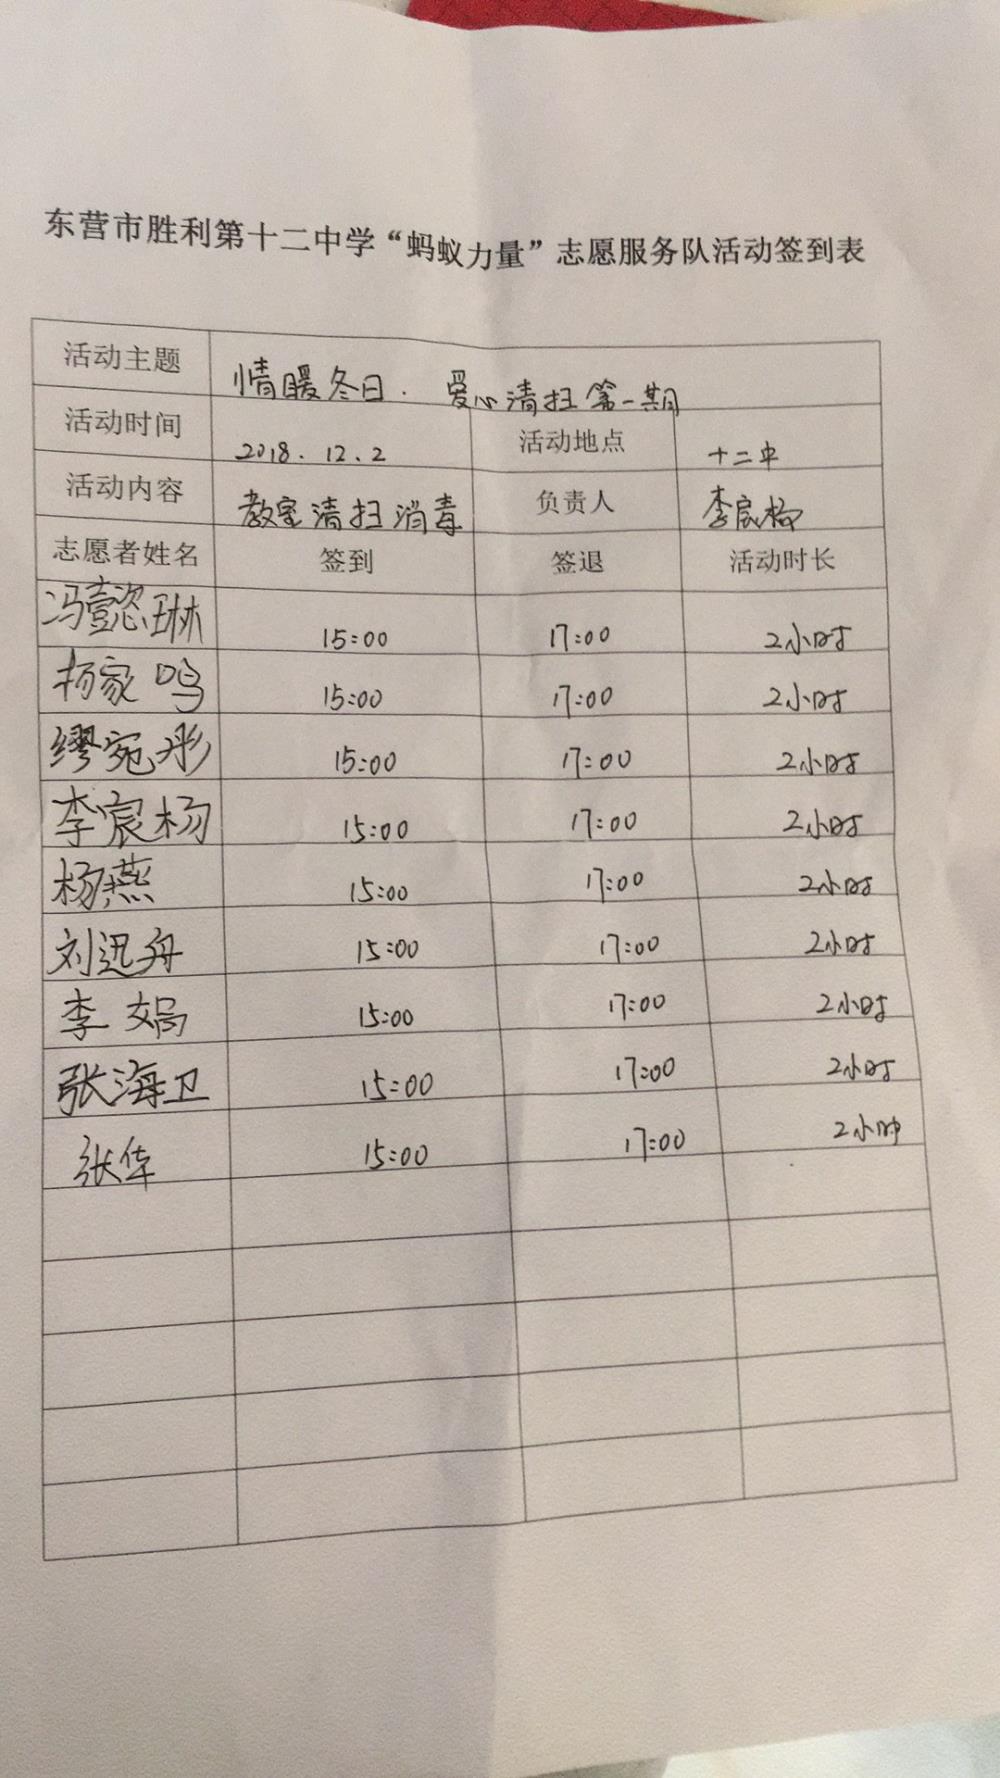 东营市胜利第十二中学“蚂蚁力量”志愿服务队活动签到表
活动主题 情暖冬日.爱心清扫第一期
活动时间 2018.12.2 活动地点 十二中
活动内容 教室清扫消毒 负责人 李宸杨
志愿者姓名 签到 签退 活动时长
冯壹懿琳 15:00 17:00 2小时
杨家鸣 15:00 17:00 2小时
缪宛彤 15:00 17:00 2小时
李宸杨 15:00 17:00 2小时
杨燕 15:00 17:00 2小时
刘迅舟 15:00 17:00 2小时
李娟 15:00 17:00 2小时
张海卫 15:00 17:00 2小时
张华 15:00 17:00 2小时